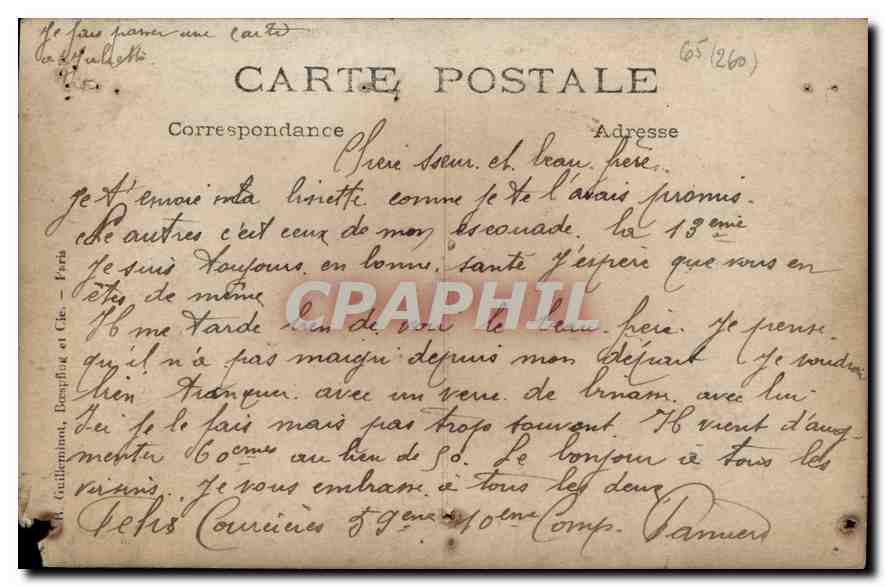 Je fais passer une carte
a Juliette
65 (260)
CARTE POSTALE
Correspondance
Adresse
Chere sseur et beau frère
Je t'envoie ma binette comme je te l'avais promis.
Les autres c'est ceux de mon escouade. la 13eme
Je suis toujours en bonne santé J'espère que vous en
êtes de même
Il me tarde bien de voir le beau frère. Je pense
qu'il n'a pas maigri depuis mon départ Je voudrai
bien trinquer avec un verre de avec lui
Ici je le fais mais pas trop souvent Il vient d'aug-
menter 60emes au lieu de 50. Le bonjour à tous les
voisins. Je vous embrasse a tous les deux
Felix Courcières 59eme 10eme Comp. Pamiers
R. Guilleminot, Bœspflug et Cie. — Paris
CPAPHIL